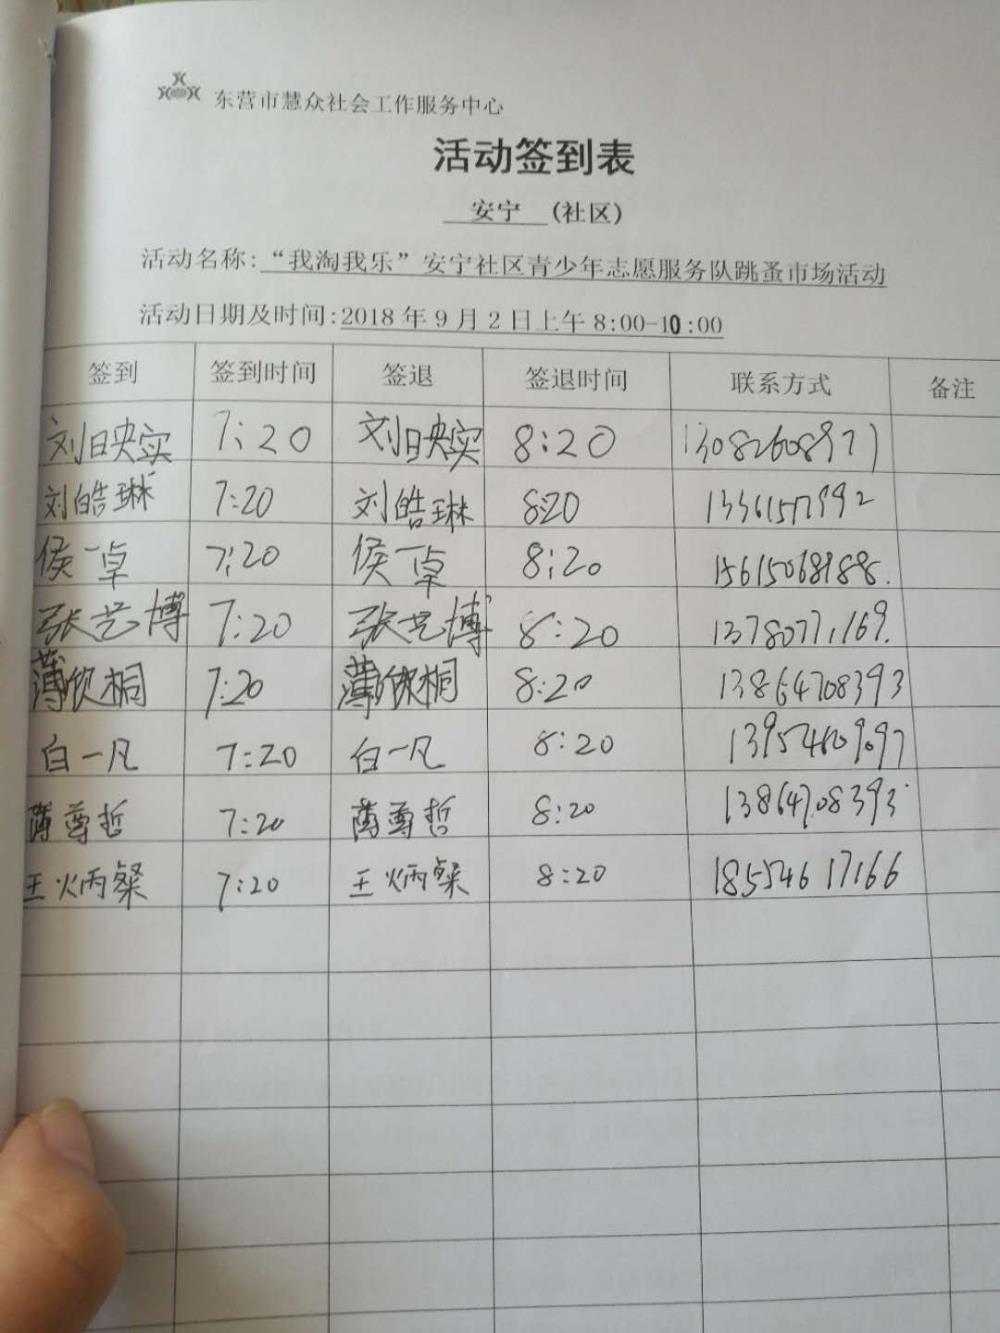 东营市慧众社会工作服务中心
活动签到表
安宁 (社区)
活动名称:“我淘我乐”安宁社区青少年志愿服务队跳蚤市场活动
活动日期及时间:2018年9月2日上午8:00-10:00
签到 签到时间 签退 签退时间 联系方式 备注
刘映实 7:20 刘映实 8:20 13082608971
刘皓琳 7:20 刘皓琳 8:20
侯一卓 7:20 侯一卓 8:20 15615068188.
张艺博 7:20 张艺博 8:20
薄欣桐 7:20 薄欣桐 8:20 13864708393
白一凡 7:20 白一凡 8:20 13954609097
薄尊哲 7:20 薄尊哲 8:20 13864708393
王炳粲 7:20 王炳粲 8:20 18554617166